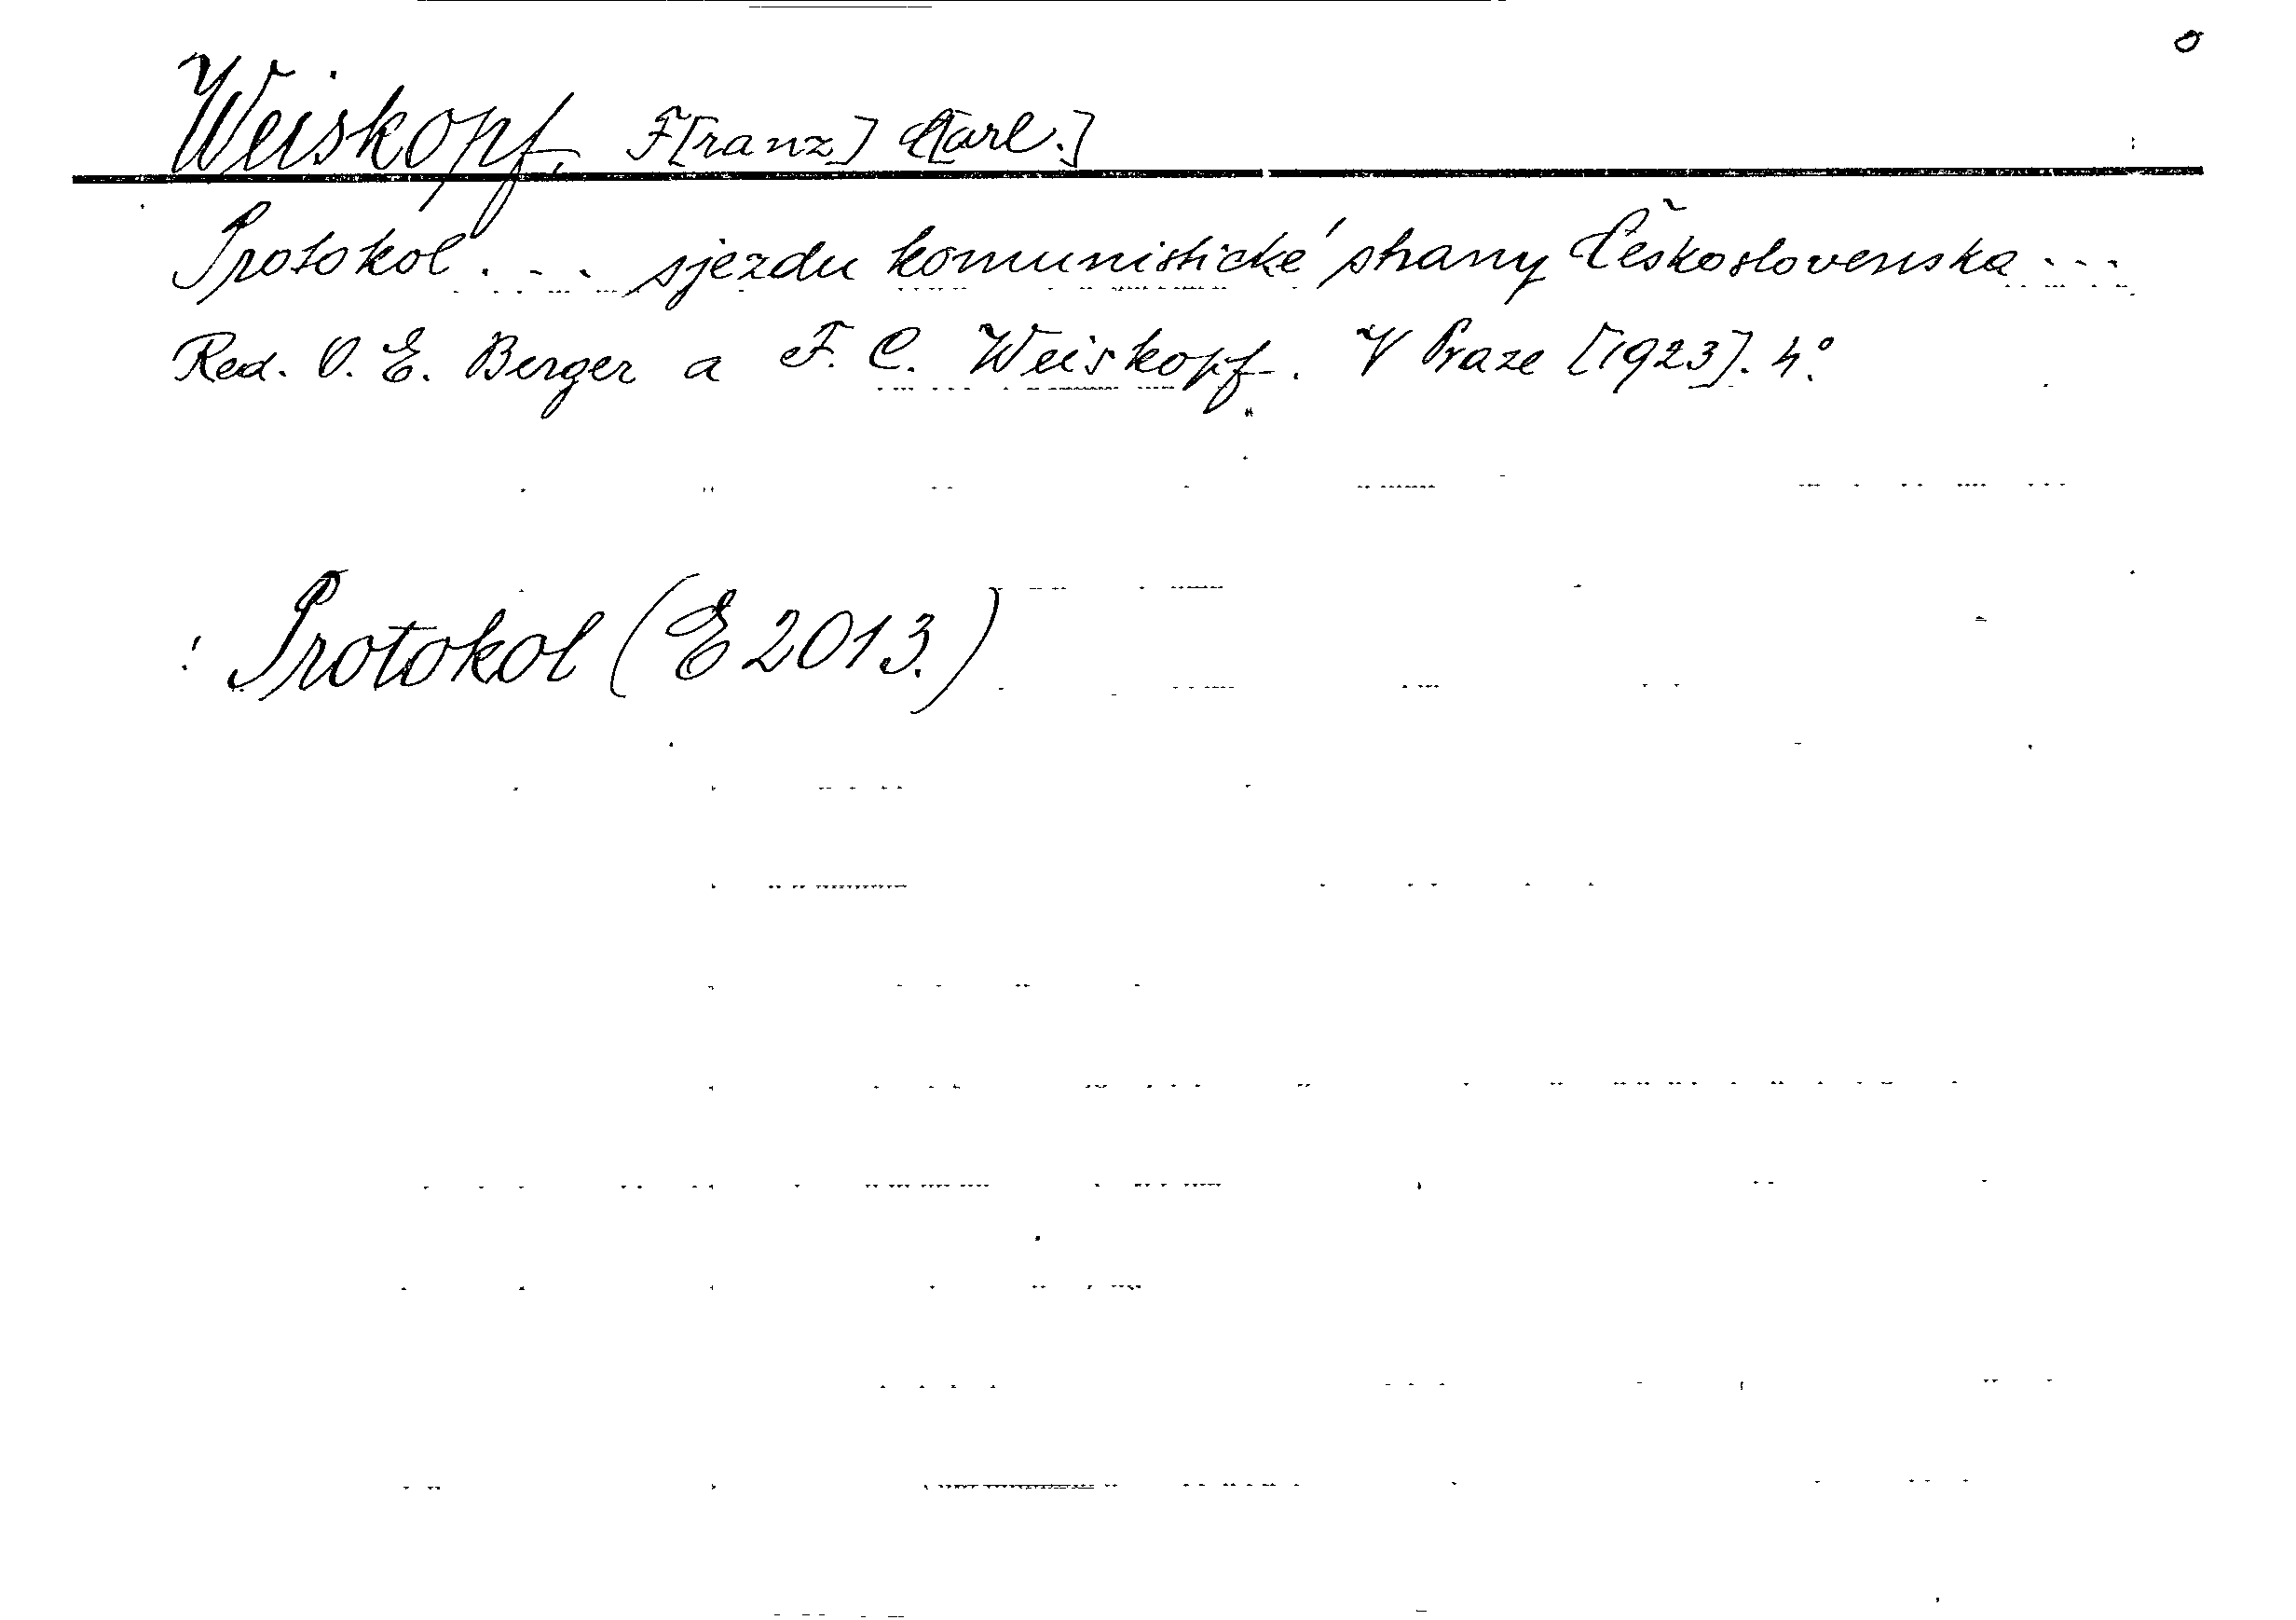 Weiskopf, F[ranz] C[arl.]
Protokol . . . sjezdu komunistické strany Československa . . .
Red. O. E. Berger a F. C. Weiskopf. V Praze [1923]. 4°.
: Protokol (E 2013.)